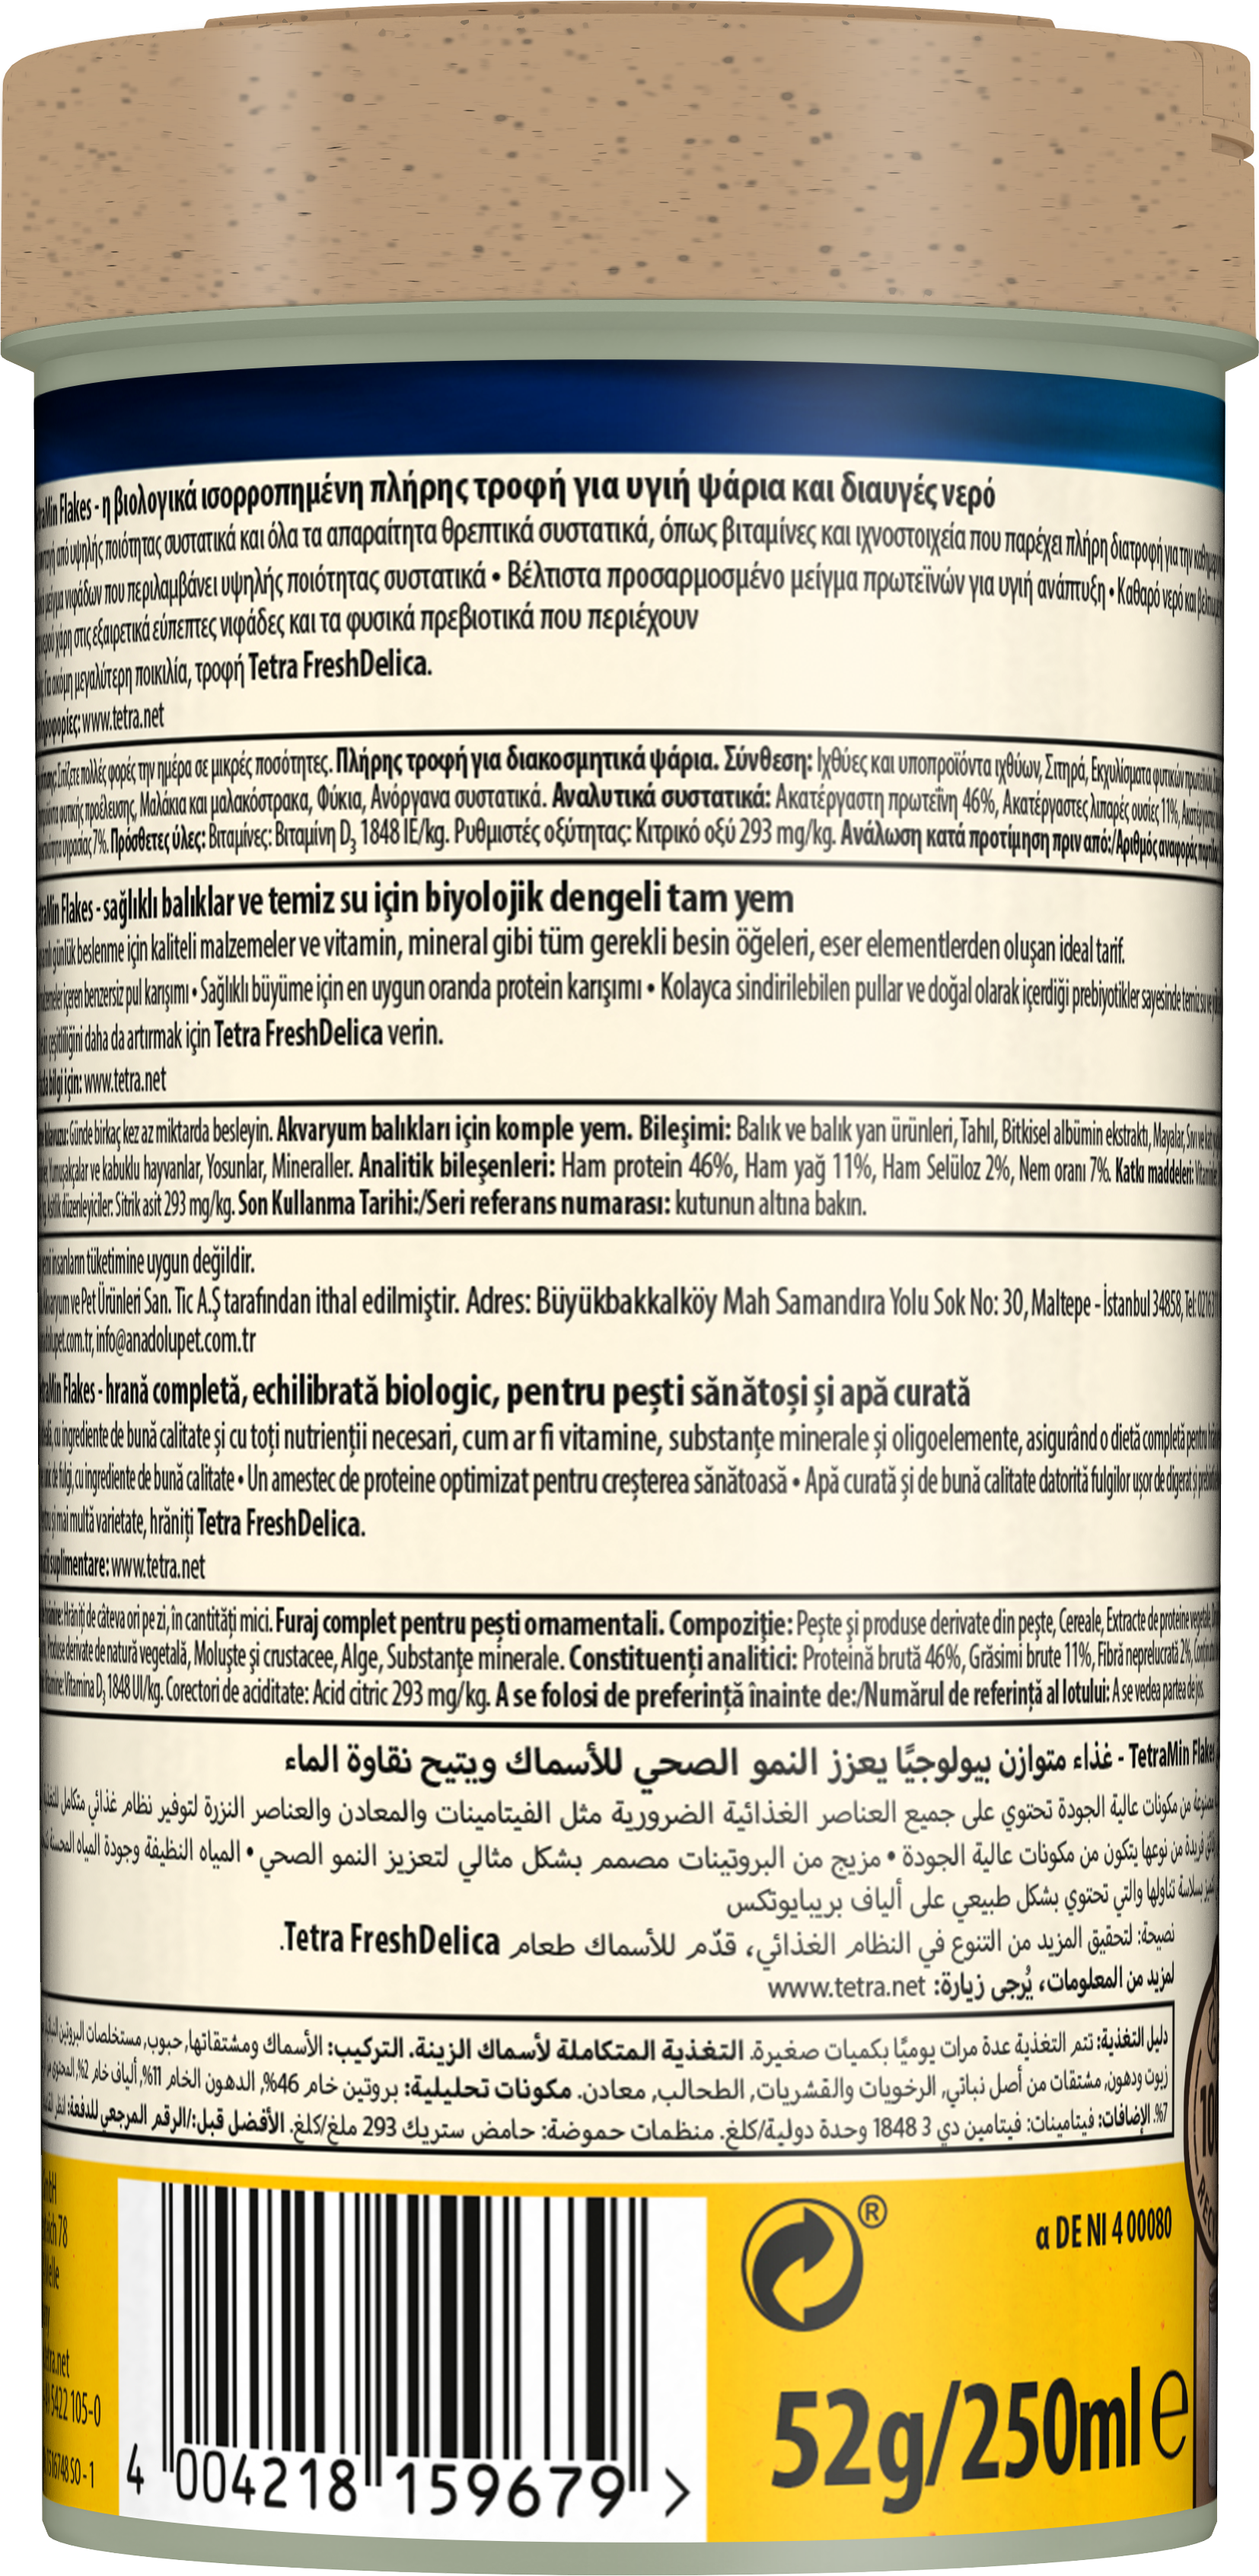 Flakes - η βιολογικά ισορροπημένη πλήρης τροφή για υγιή ψάρια και διαυγές νερό
από υψηλής ποιότητας συστατικά και όλα τα απαραίτητα θρεπτικά συστατικά, όπως βιταμίνες και ιχνοστοιχεία που παρέχει πλήρη διατροφή για την
μείγμα νιφάδων που περιλαμβάνει υψηλής ποιότητας συστατικά • Βέλτιστα προσαρμοσμένο μείγμα πρωτεϊνών για υγιή ανάπτυξη • Καθαρό νερό και
χάρη στις εξαιρετικά εύπεπτες νιφάδες και τα φυσικά πρεβιοτικά που περιέχουν
Για ακόμη μεγαλύτερη ποικιλία, τροφή Tetra FreshDelica.
www.tetra.net
Ταΐζετε πολλές φορές την ημέρα σε μικρές ποσότητες. Πλήρης τροφή για διακοσμητικά ψάρια. Σύνθεση: Ιχθύες και υποπροϊόντα ιχθύων, Σιτηρά, Εκχυλίσματα φυτικών
φυτικής προέλευσης, Μαλάκια και μαλακόστρακα, Φύκια, Ανόργανα συστατικά. Αναλυτικά συστατικά: Ακατέργαστη πρωτεΐνη 46%, Ακατέργαστες λιπαρές ουσίες 11%,
υγρασίας 7%. Πρόσθετες ύλες: Βιταμίνες: Βιταμίνη D₃ 1848 IE/kg. Ρυθμιστές οξύτητας: Κιτρικό οξύ 293 mg/kg. Ανάλωση κατά προτίμηση πριν από:/Αριθμός αναφοράς
Flakes - sağlıklı balıklar ve temiz su için biyolojik dengeli tam yem
günlük beslenme için kaliteli malzemeler ve vitamin, mineral gibi tüm gerekli besin öğeleri, eser elementlerden oluşan ideal tarif.
içeren benzersiz pul karışımı • Sağlıklı büyüme için en uygun oranda protein karışımı • Kolayca sindirilebilen pullar ve doğal olarak içerdiği prebiyotikler sayesinde temiz su
çeşitliliğini daha da artırmak için Tetra FreshDelica verin.
bilgi için: www.tetra.net
Günde birkaç kez az miktarda besleyin. Akvaryum balıkları için komple yem. Bileşimi: Balık ve balık yan ürünleri, Tahıl, Bitkisel albümin ekstraktı, Mayalar,
Yumuşakçalar ve kabuklu hayvanlar, Yosunlar, Mineraller. Analitik bileşenleri: Ham protein 46%, Ham yağ 11%, Ham Selüloz 2%, Nem oranı 7%. Katkı maddeleri:
düzenleyiciler: Sitrik asit 293 mg/kg. Son Kullanma Tarihi:/Seri referans numarası: kutunun altına bakın.
insanların tüketimine uygun değildir.
ve Pet Ürünleri San. Tic A.Ş tarafından ithal edilmiştir. Adres: Büyükbakkalköy Mah Samandıra Yolu Sok No: 30, Maltepe - İstanbul 34858, Tel:
info@anadolupet.com.tr
Flakes - hrană completă, echilibrată biologic, pentru pești sănătoși și apă curată
cu ingrediente de bună calitate și cu toți nutrienții necesari, cum ar fi vitamine, substanțe minerale și oligoelemente, asigurând o dietă completă pentru
de fulgi, cu ingrediente de bună calitate • Un amestec de proteine optimizat pentru creșterea sănătoasă • Apă curată și de bună calitate datorită fulgilor ușor de digerat și
și mai multă varietate, hrăniți Tetra FreshDelica.
suplimentare: www.tetra.net
Hrăniți de câteva ori pe zi, în cantități mici. Furaj complet pentru pești ornamentali. Compoziție: Pește și produse derivate din pește, Cereale, Extracte de proteine vegetale,
Produse derivate de natură vegetală, Moluște și crustacee, Alge, Substanțe minerale. Constituenți analitici: Proteină brută 46%, Grăsimi brute 11%, Fibră neprelucrată 2%,
Vitamina D₃ 1848 UI/kg. Corectori de aciditate: Acid citric 293 mg/kg. A se folosi de preferință înainte de:/Numărul de referință al lotului: A se vedea partea de jos.
TetraMin Flakes - غذاء متوازن بيولوجيًا يعزز النمو الصحي للأسماك ويتيح نقاوة الماء
من مكونات عالية الجودة تحتوي على جميع العناصر الغذائية الضرورية مثل الفيتامينات والمعادن والعناصر النزرة لتوفير نظام غذائي متكامل
فريدة من نوعها يتكون من مكونات عالية الجودة • مزيج من البروتينات مصمم بشكل مثالي لتعزيز النمو الصحي • المياه النظيفة وجودة المياه المحسنة
بسلاسة تناولها والتي تحتوي بشكل طبيعي على ألياف بريبايوتكس
نصيحة: لتحقيق المزيد من التنوع في النظام الغذائي، قدّم للأسماك طعام Tetra FreshDelica.
لمزيد من المعلومات، يُرجى زيارة: www.tetra.net
دليل التغذية: تتم التغذية عدة مرات يوميًا بكميات صغيرة. التغذية المتكاملة لأسماك الزينة. التركيب: الأسماك ومشتقاتها, حبوب, مستخلصات البروتين
زيوت ودهون, مشتقات من أصل نباتي, الرخويات والقشريات, الطحالب, معادن. مكونات تحليلية: بروتين خام 46%, الدهون الخام 11%, ألياف خام 2%, المحتوى
7%. الإضافات: فيتامينات: فيتامين دي 3 1848 وحدة دولية/كلغ. منظمات حموضة: حامض ستريك 293 ملغ/كلغ. الأفضل قبل:/الرقم المرجعي للدفعة: انظر
78
5422 105-0
SO - 1
4 004218 159679 >
®
α DE NI 4 00080
52g/250ml e